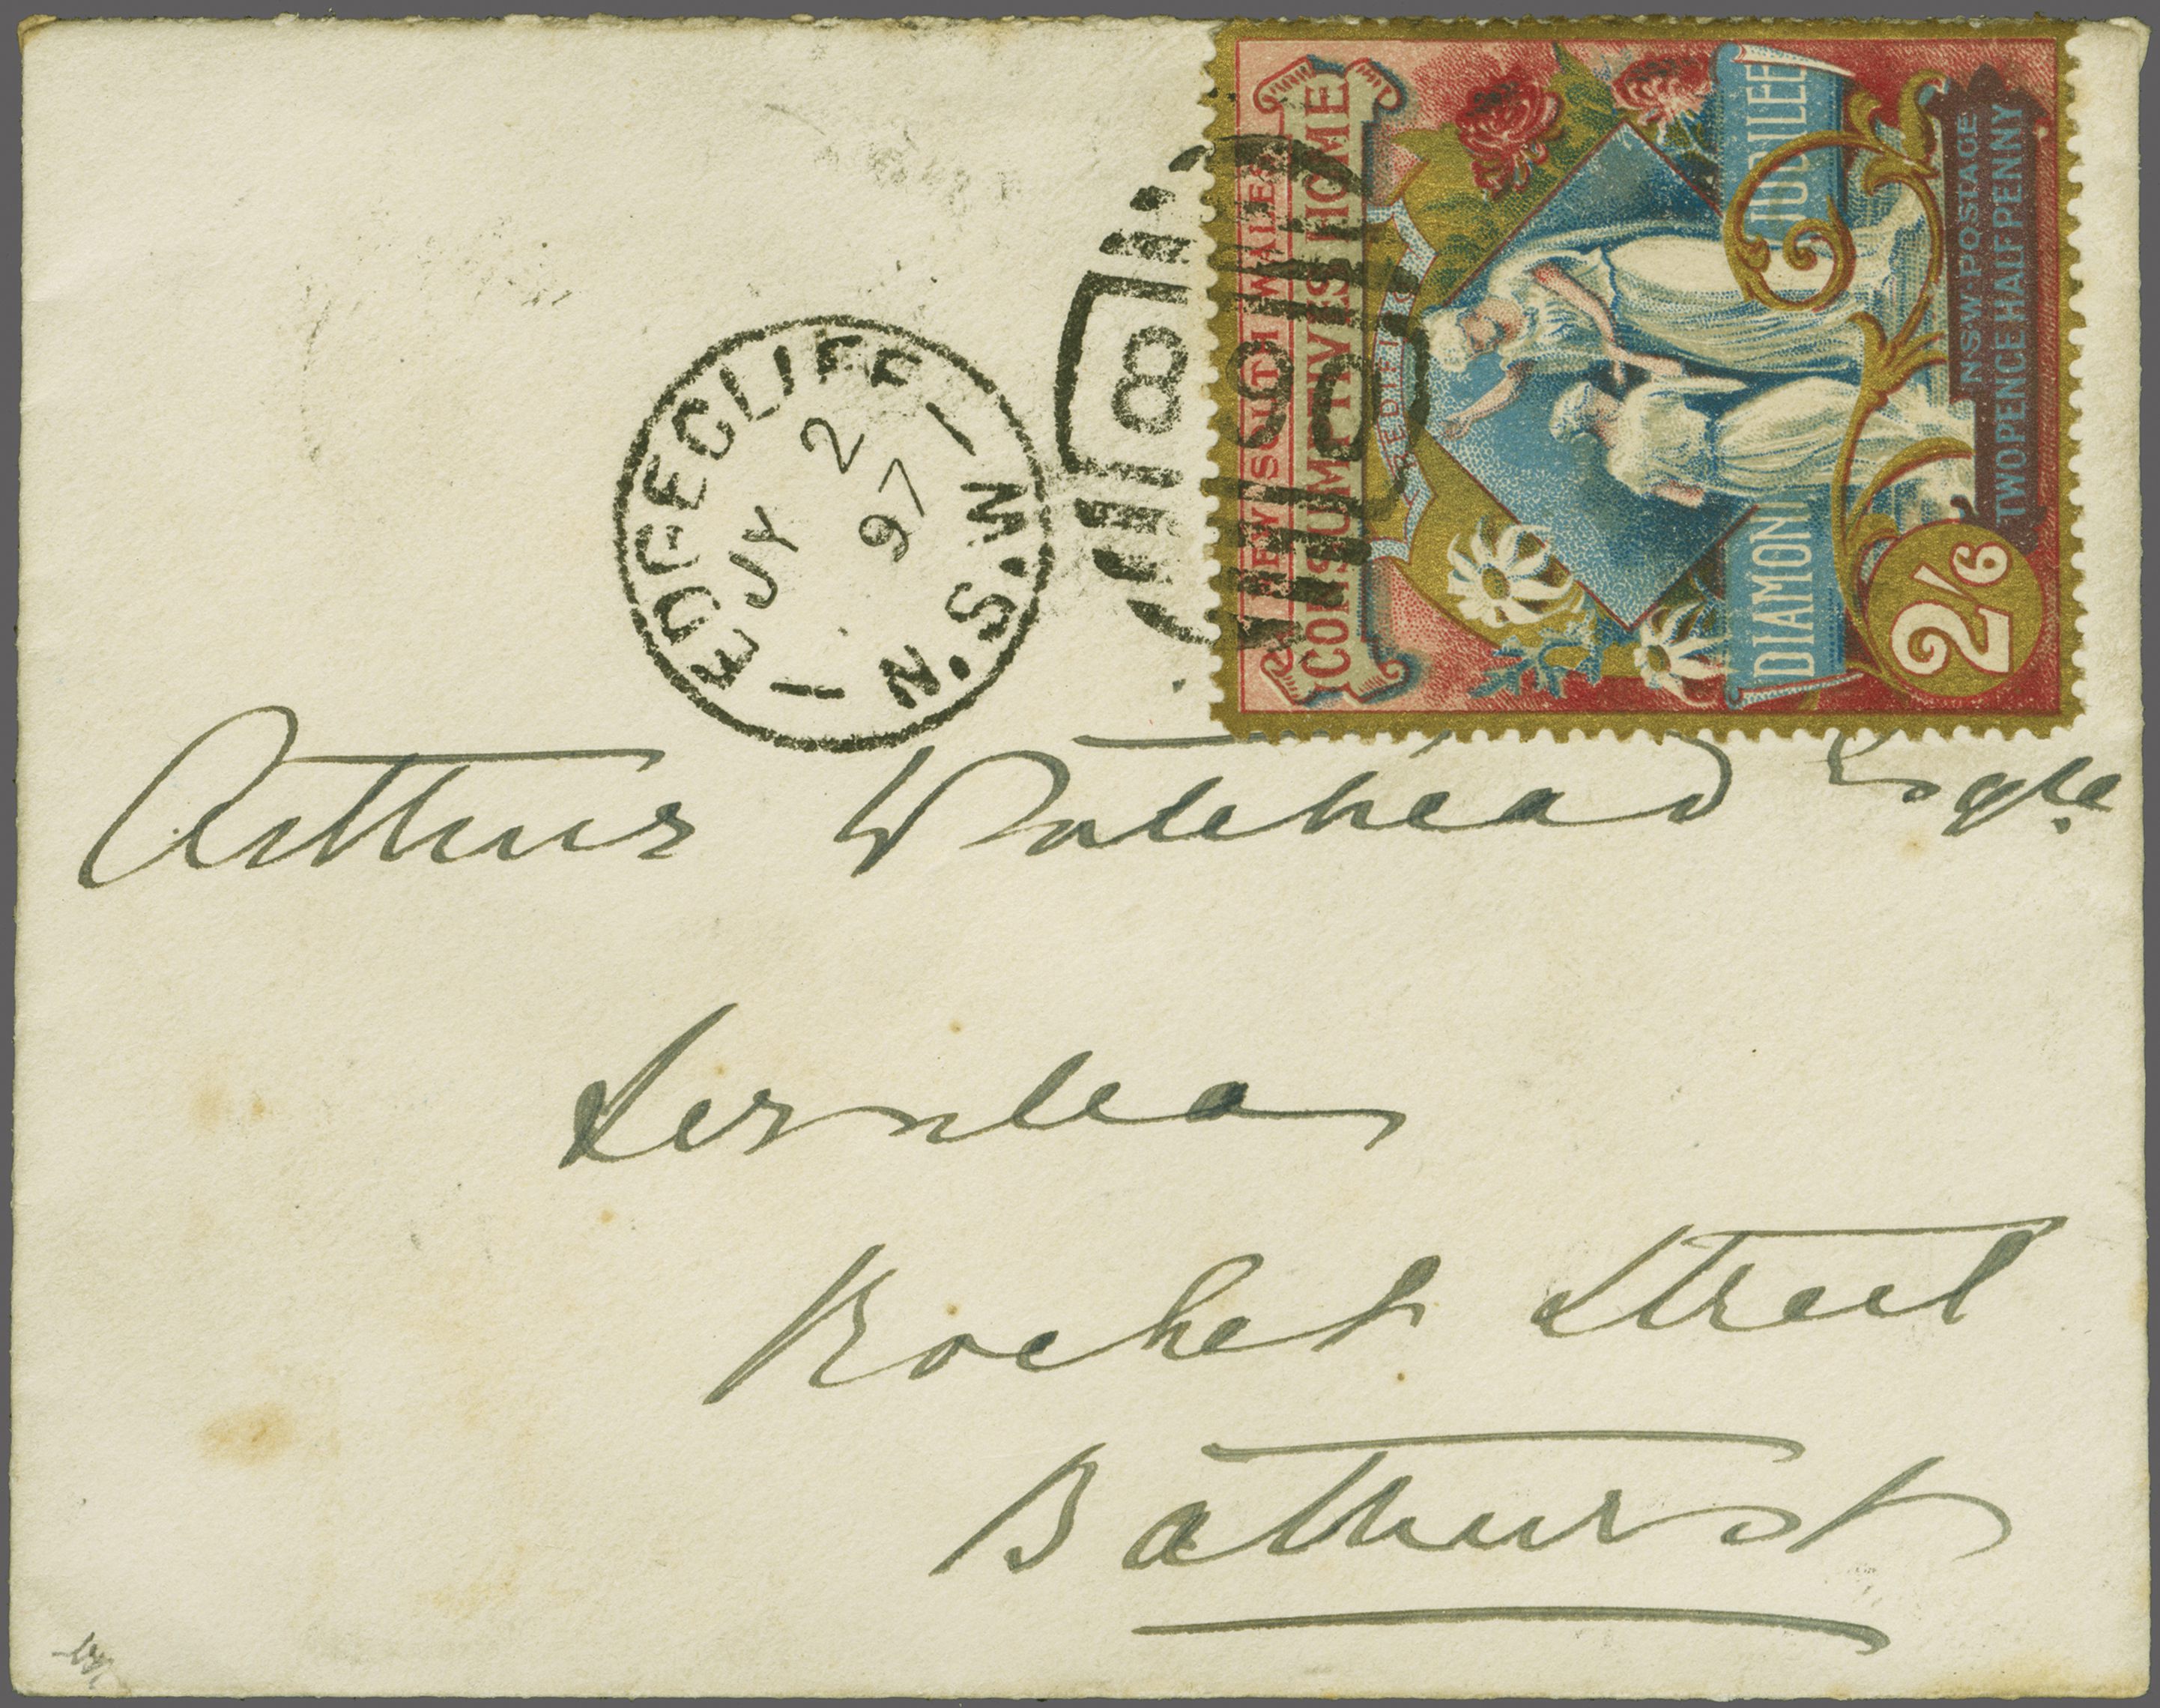 NEW SOUTH WALES
CONSUMPTIVES HOME
DIAMOND JUBILEE
N.S.W. POSTAGE
TWOPENCE HALFPENNY
2/6
EDGECLIFF
JY 2
97
N.S.W
Arthur Whitehead Esqre
Rocket Street
Bathurst